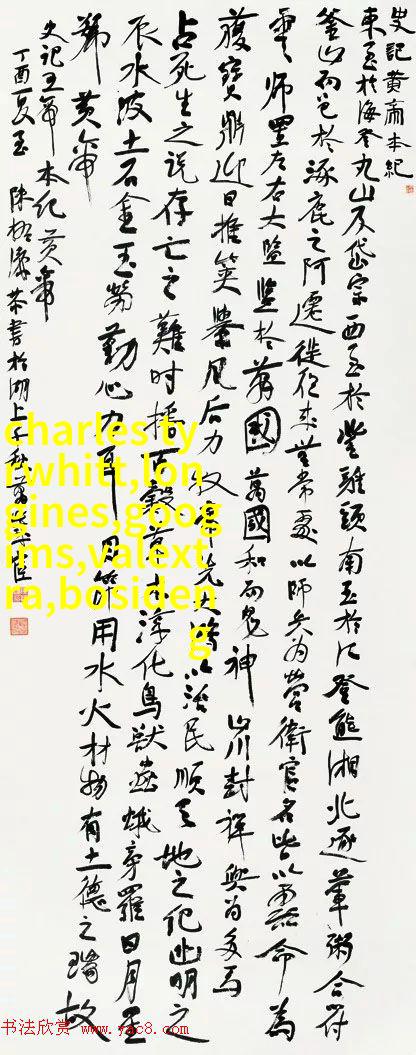 史記黄帝本紀
東至於海登丸山及岱宗西至於登雞頭南至於江登熊湘北逐葷粥合符
釜山而邑於涿鹿之阿遷徙往來無常處以師兵為營衛官名皆以雲命為
雲師置左右大監監於萬國萬國和而鬼神山川封禪與為多焉
獲寶鼎迎日推筴舉風后力牧常先大鴻以治民順天地之紀幽明之
占死生之说存亡之難時播百穀草木淳化鳥獸蟲蛾旁羅日月星
辰水波土石金玉勞勤心力耳目節用水火材物有土德之瑞故
號黄帝
史记五帝本纪黄帝
丁酉夏至 陳 恭書於湖上千秋萬
charles ty
rwhitt,lon
gines,goog
ims,valext
ra,bosiden
g
书法欣赏 www.yac8.com